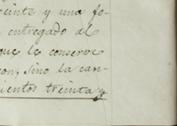 veinte y una fo-
entregado al
que le conserve
con, sino la can-
cuentos treinta y